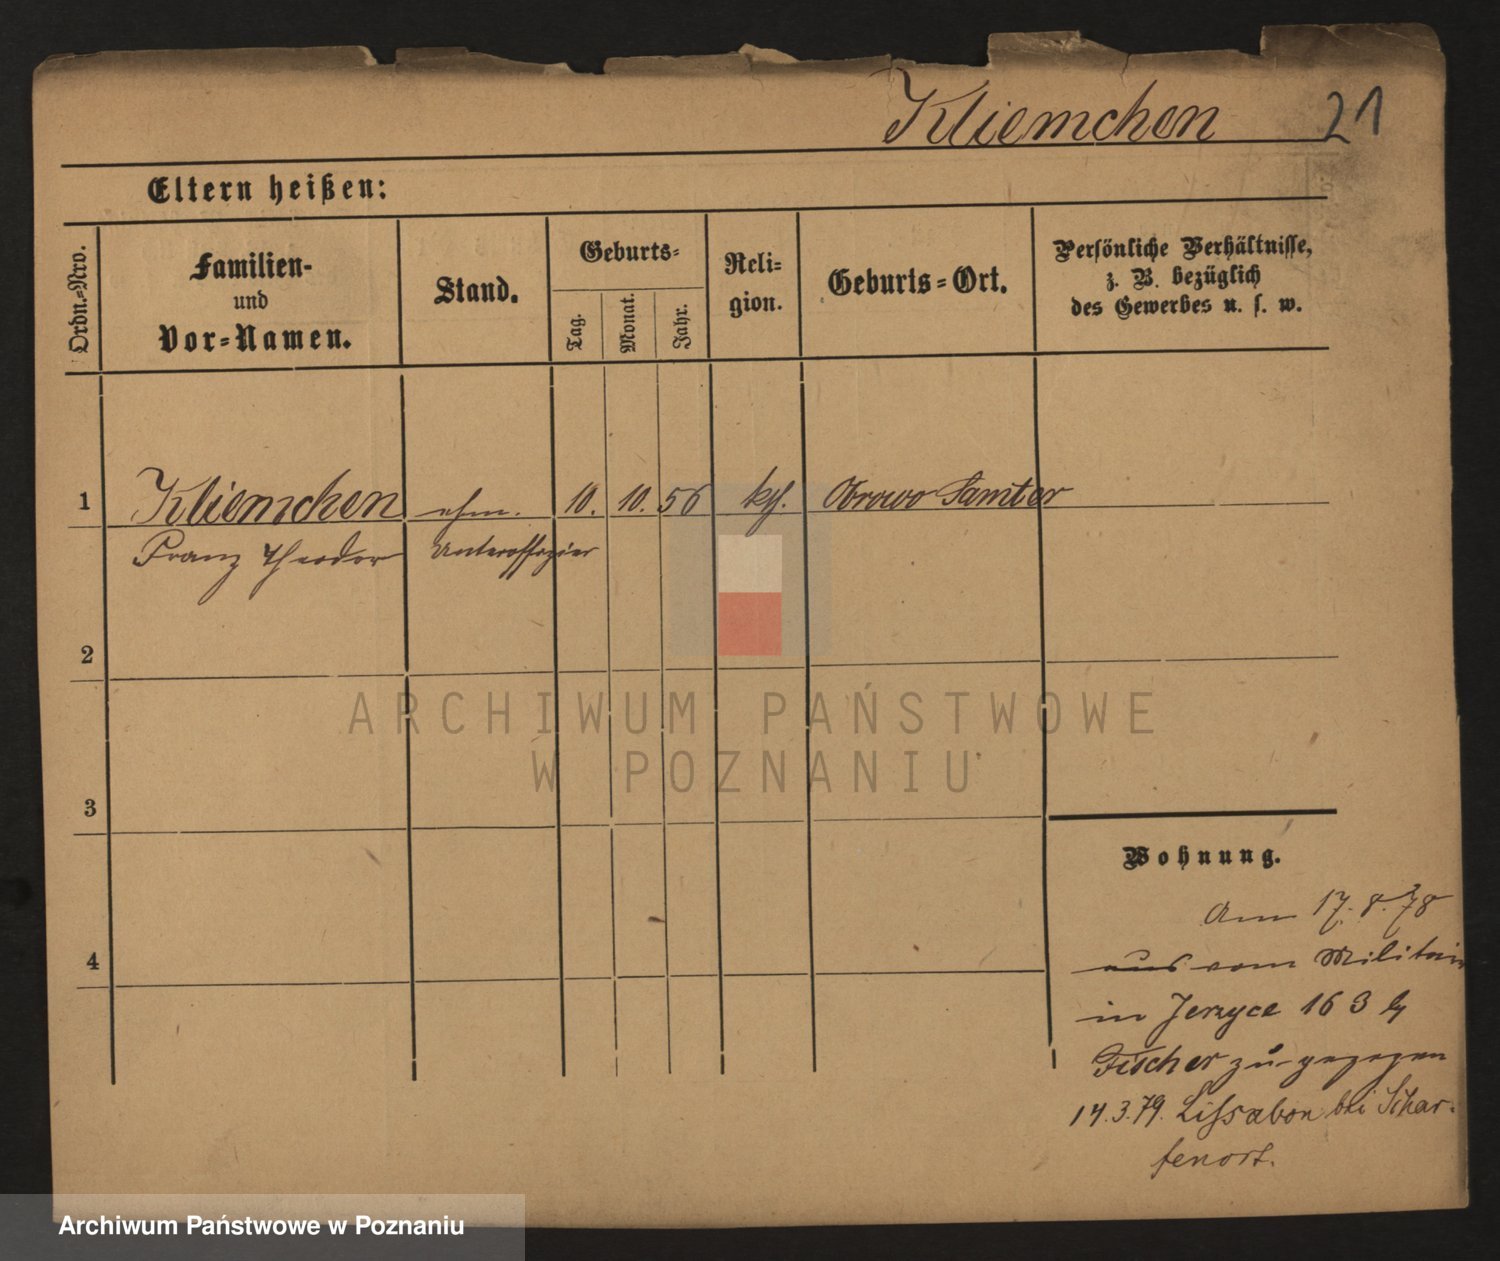 Kliemchen 21
Eltern heißen:
Ordn.=Nro.
Familien-
und
Vor=Namen.
Stand.
Geburts=
Tag.
Monat.
Jahr.
Reli=
gion.
Geburts=Ort.
Persönliche Verhältnisse,
z. B. bezüglich
des Gewerbes u. s. w.
1 Kliemchen ehm. 10. 10. 56 kth. Obrowo Samter
Franz Theodor Unteroffizier
2
ARCHIWUM PAŃSTWOWE
W POZNANIU
3
Wohnung.
Am 17. 8. 78
aus vom Militair
in Jerzyce 16 3
Fischer zu gezogen
14.3.79. Lissabon bei Schar-
fenort.
4
Archiwum Państwowe w Poznaniu